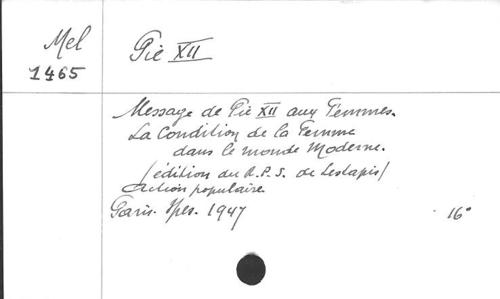 Mel
1465
Pie XII
Message de Pie XII aux Femmes.
La Condition de la Femme
dans le monde Moderne.
/édition du R.P.S. de Lestapis/
Action populaire
Paris. Spes. 1947
16°